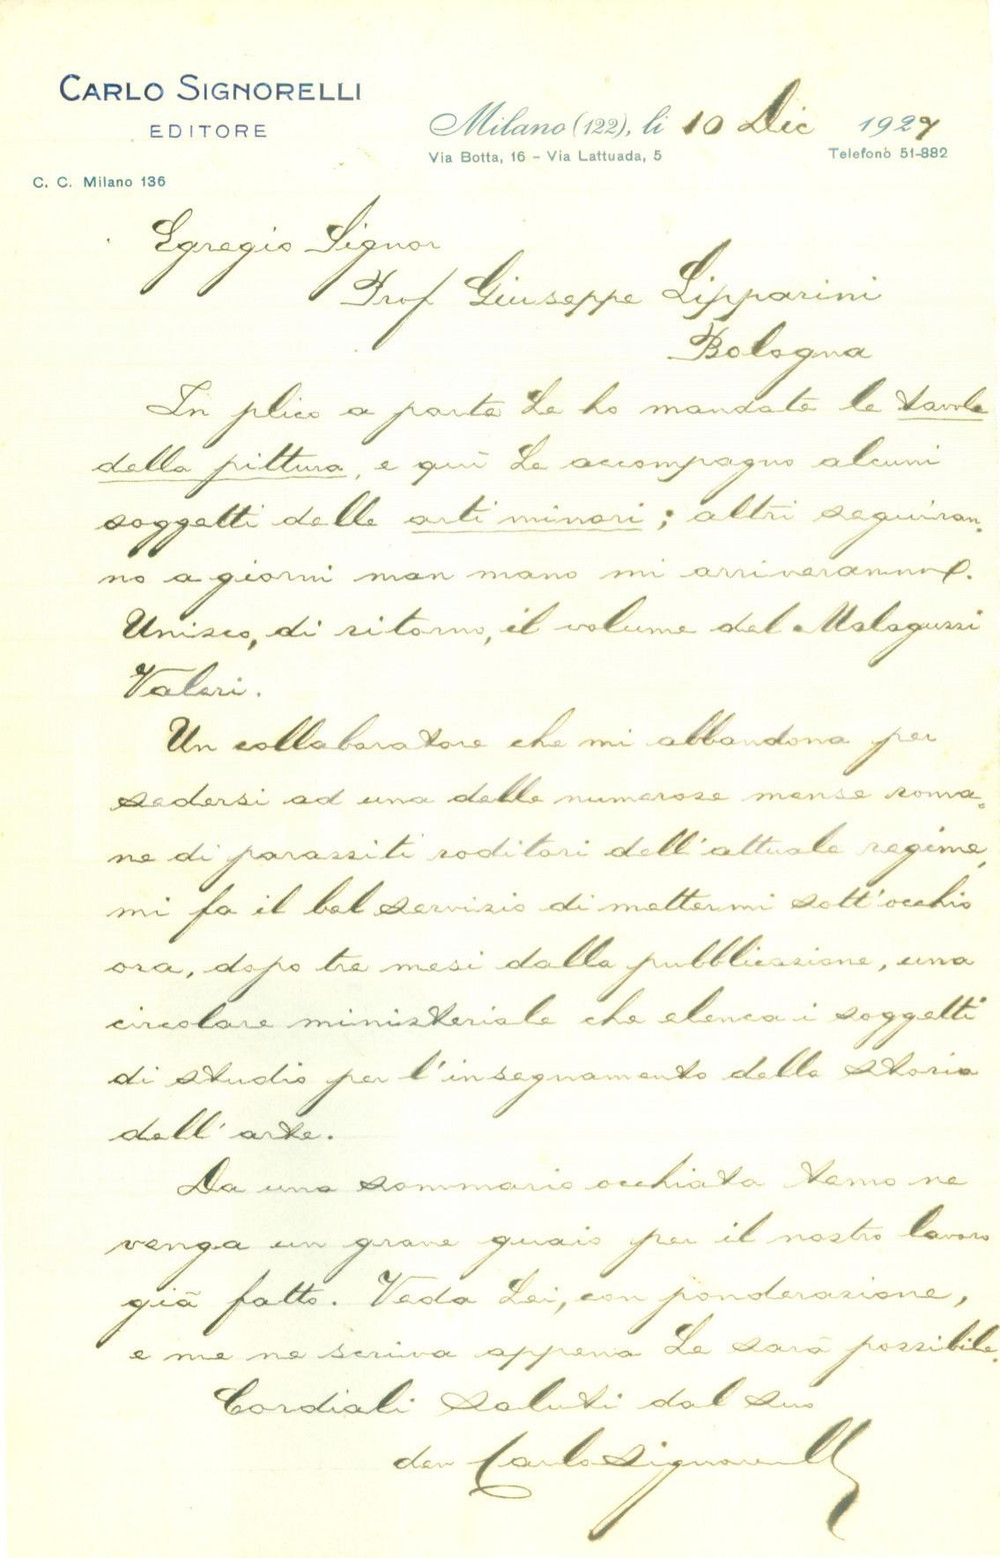 CARLO SIGNORELLI
EDITORE
C. C. Milano 136
Milano (122), li 10 Dic 1927
Via Botta, 16 - Via Lattuada, 5
Telefono 51-882
Egregio Signor
Prof Giuseppe Lipparini
Bologna
In plico a parte Le ho mandate le tavole
della pittura, e quì Le accompagno alcuni
soggetti delle arti minori; altri seguiran-
no a giorni man mano mi arriveranno.
Unisco, di ritorno, il volume del Malaguzzi
Valeri.
Un collaboratore che mi abbandona per
sedersi ad una delle numerose mense roma-
ne di parassiti roditori dell'attuale regime,
mi fa il bel servizio di mettermi sott'occhio
ora, dopo tre mesi dalla pubblicazione, una
circolare ministeriale che elenca i soggetti
di studio per l'insegnamento della storia
dell'arte.
Da una sommaria occhiata temo ne
venga un grave guaio per il nostro lavoro
già fatto. Veda Lei, con ponderazione,
e me ne scriva appena Le sarà possibile.
Cordiali saluti dal suo
Carlo Signorelli